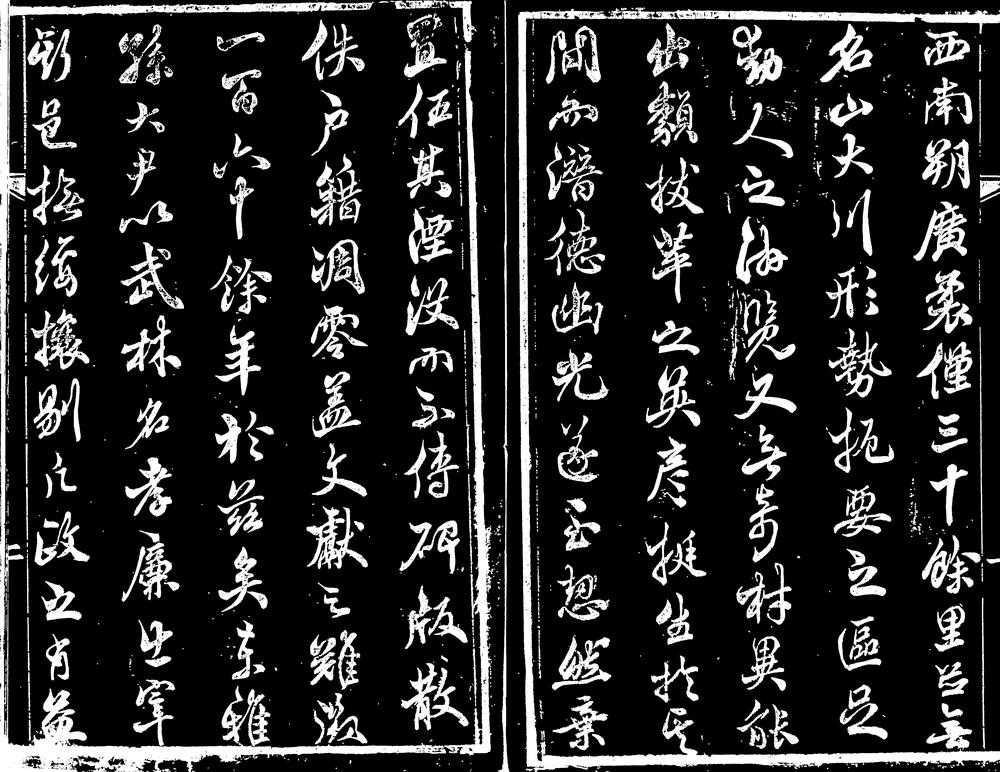 西南朔廣袤僅三十餘里既無
名山大川形勢扼要之區足
動人之游覽又無奇材異能
出類拔萃之英彦挺生於其
間而潛德幽光遂至恝然棄
置任其湮没而不傳碑版散
佚户籍凋零蓋文獻之難徵
一百六十餘年於茲矣東雅
孫大尹以武林名孝廉出宰
彭邑撫綏攘剔凡政之有益